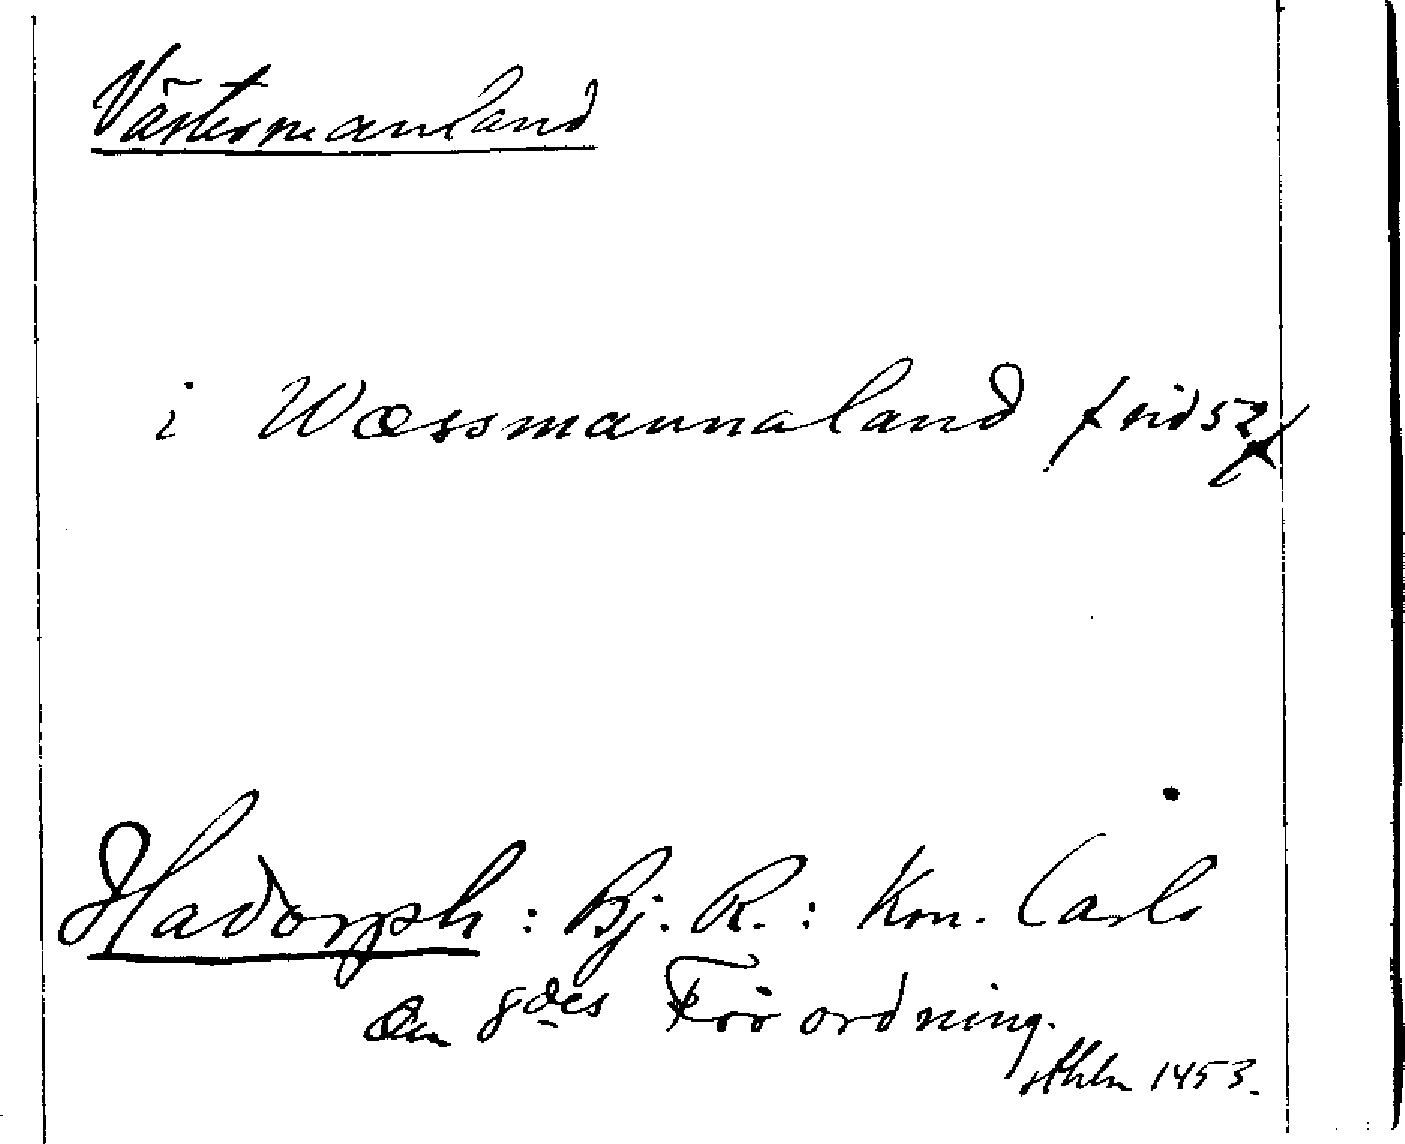 Västermanland
i Wæssmannaland
Hadorph: Bj. R.: Kon. Carls
den 8des Förordning.
Sthlm 1453.